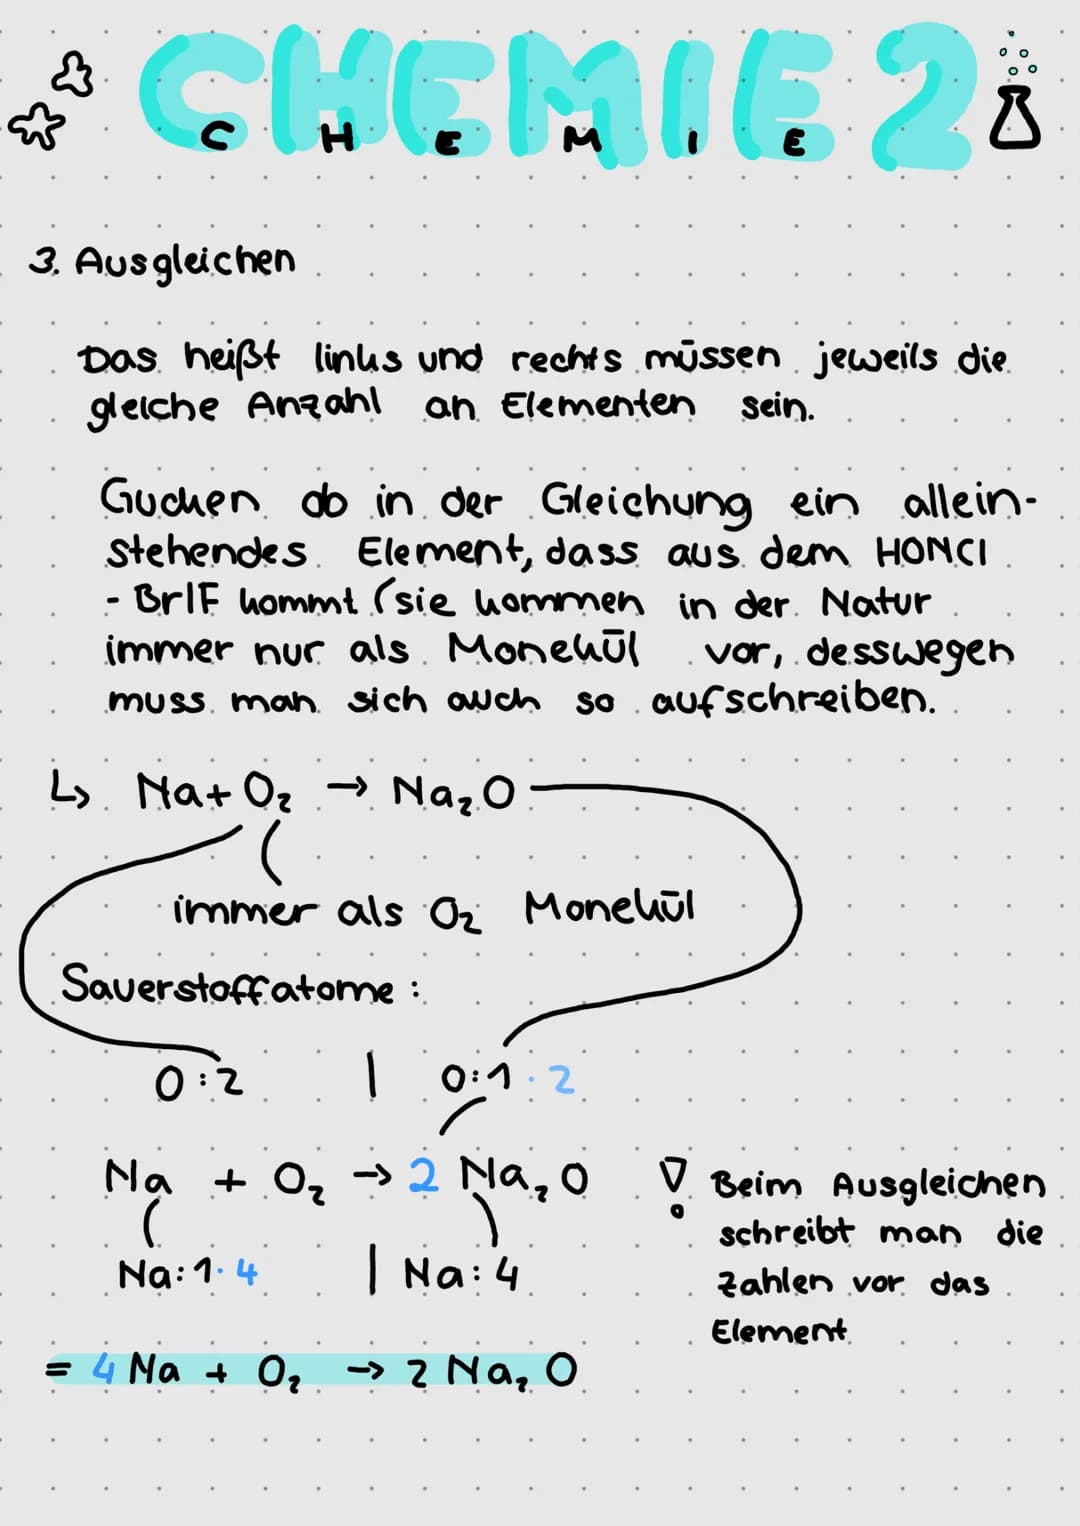 CHEMIE 2
CHEMIE
3. Ausgleichen
Das heißt links und rechts müssen jeweils die
gleiche Anzahl an Elementen sein.
Gucken ob in der Gleichung ein allein-
stehendes Element, dass aus dem HONCl
- BrIF kommt (sie kommen in der Natur
immer nur als Monekül vor, desswegen
muss man sich auch so aufschreiben.
↳ Na + O₂ → Na₂O
immer als O₂ Monekül
Sauerstoffatome :
O : 2 | O : 1 · 2
Na + O₂ → 2 Na₂O
Na : 1 · 4 | Na : 4
! Beim Ausgleichen
schreibt man die
Zahlen vor das
Element
= 4 Na + O₂ → 2 Na₂O